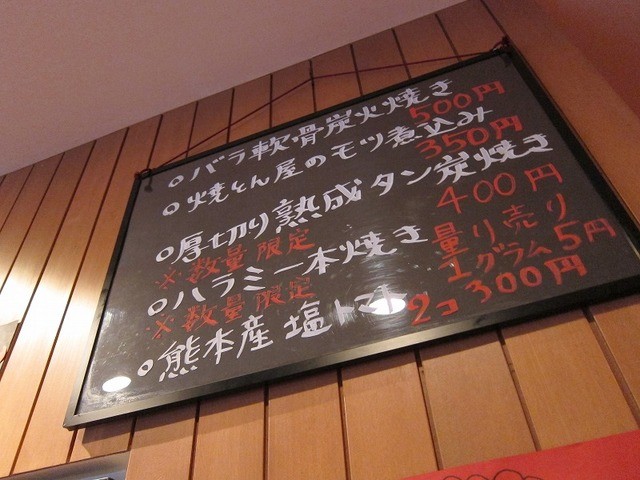 ○バラ軟骨炭火焼き 500円
○焼とん屋のモツ煮込み 350円
○厚切り熟成タン炭焼き 400円
※数量限定
○ハラミ一本焼き 量り売り
※数量限定 1グラム5円
○熊本産塩トマト 2コ300円